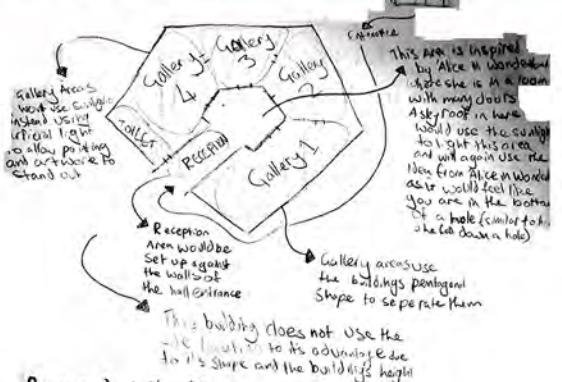 Entrance
Gallery
3
Gallery
4
Gallery
2
Gallery 1
TOILET
RECEPTION
Gallery Areas
wont use sunlight
instead using
artificial light
to allow painting
and artwork to
stand out
This Area is inspired
by Alice in Wonderland
where she is in a room
with many doors
A sky roof in here
would use the sunlight
to light this area
and will again use the
idea from Alice in Wonderland
as it would feel like
you are in the bottom
of a hole (similar to
she fell down a hole)
Reception
Area would be
Set up against
the walls of
the hall entrance
Gallery areas use
the buildings pentagonal
Shape to seperate them
This building does not use the
to its advantage due
to it's shape and the building's height